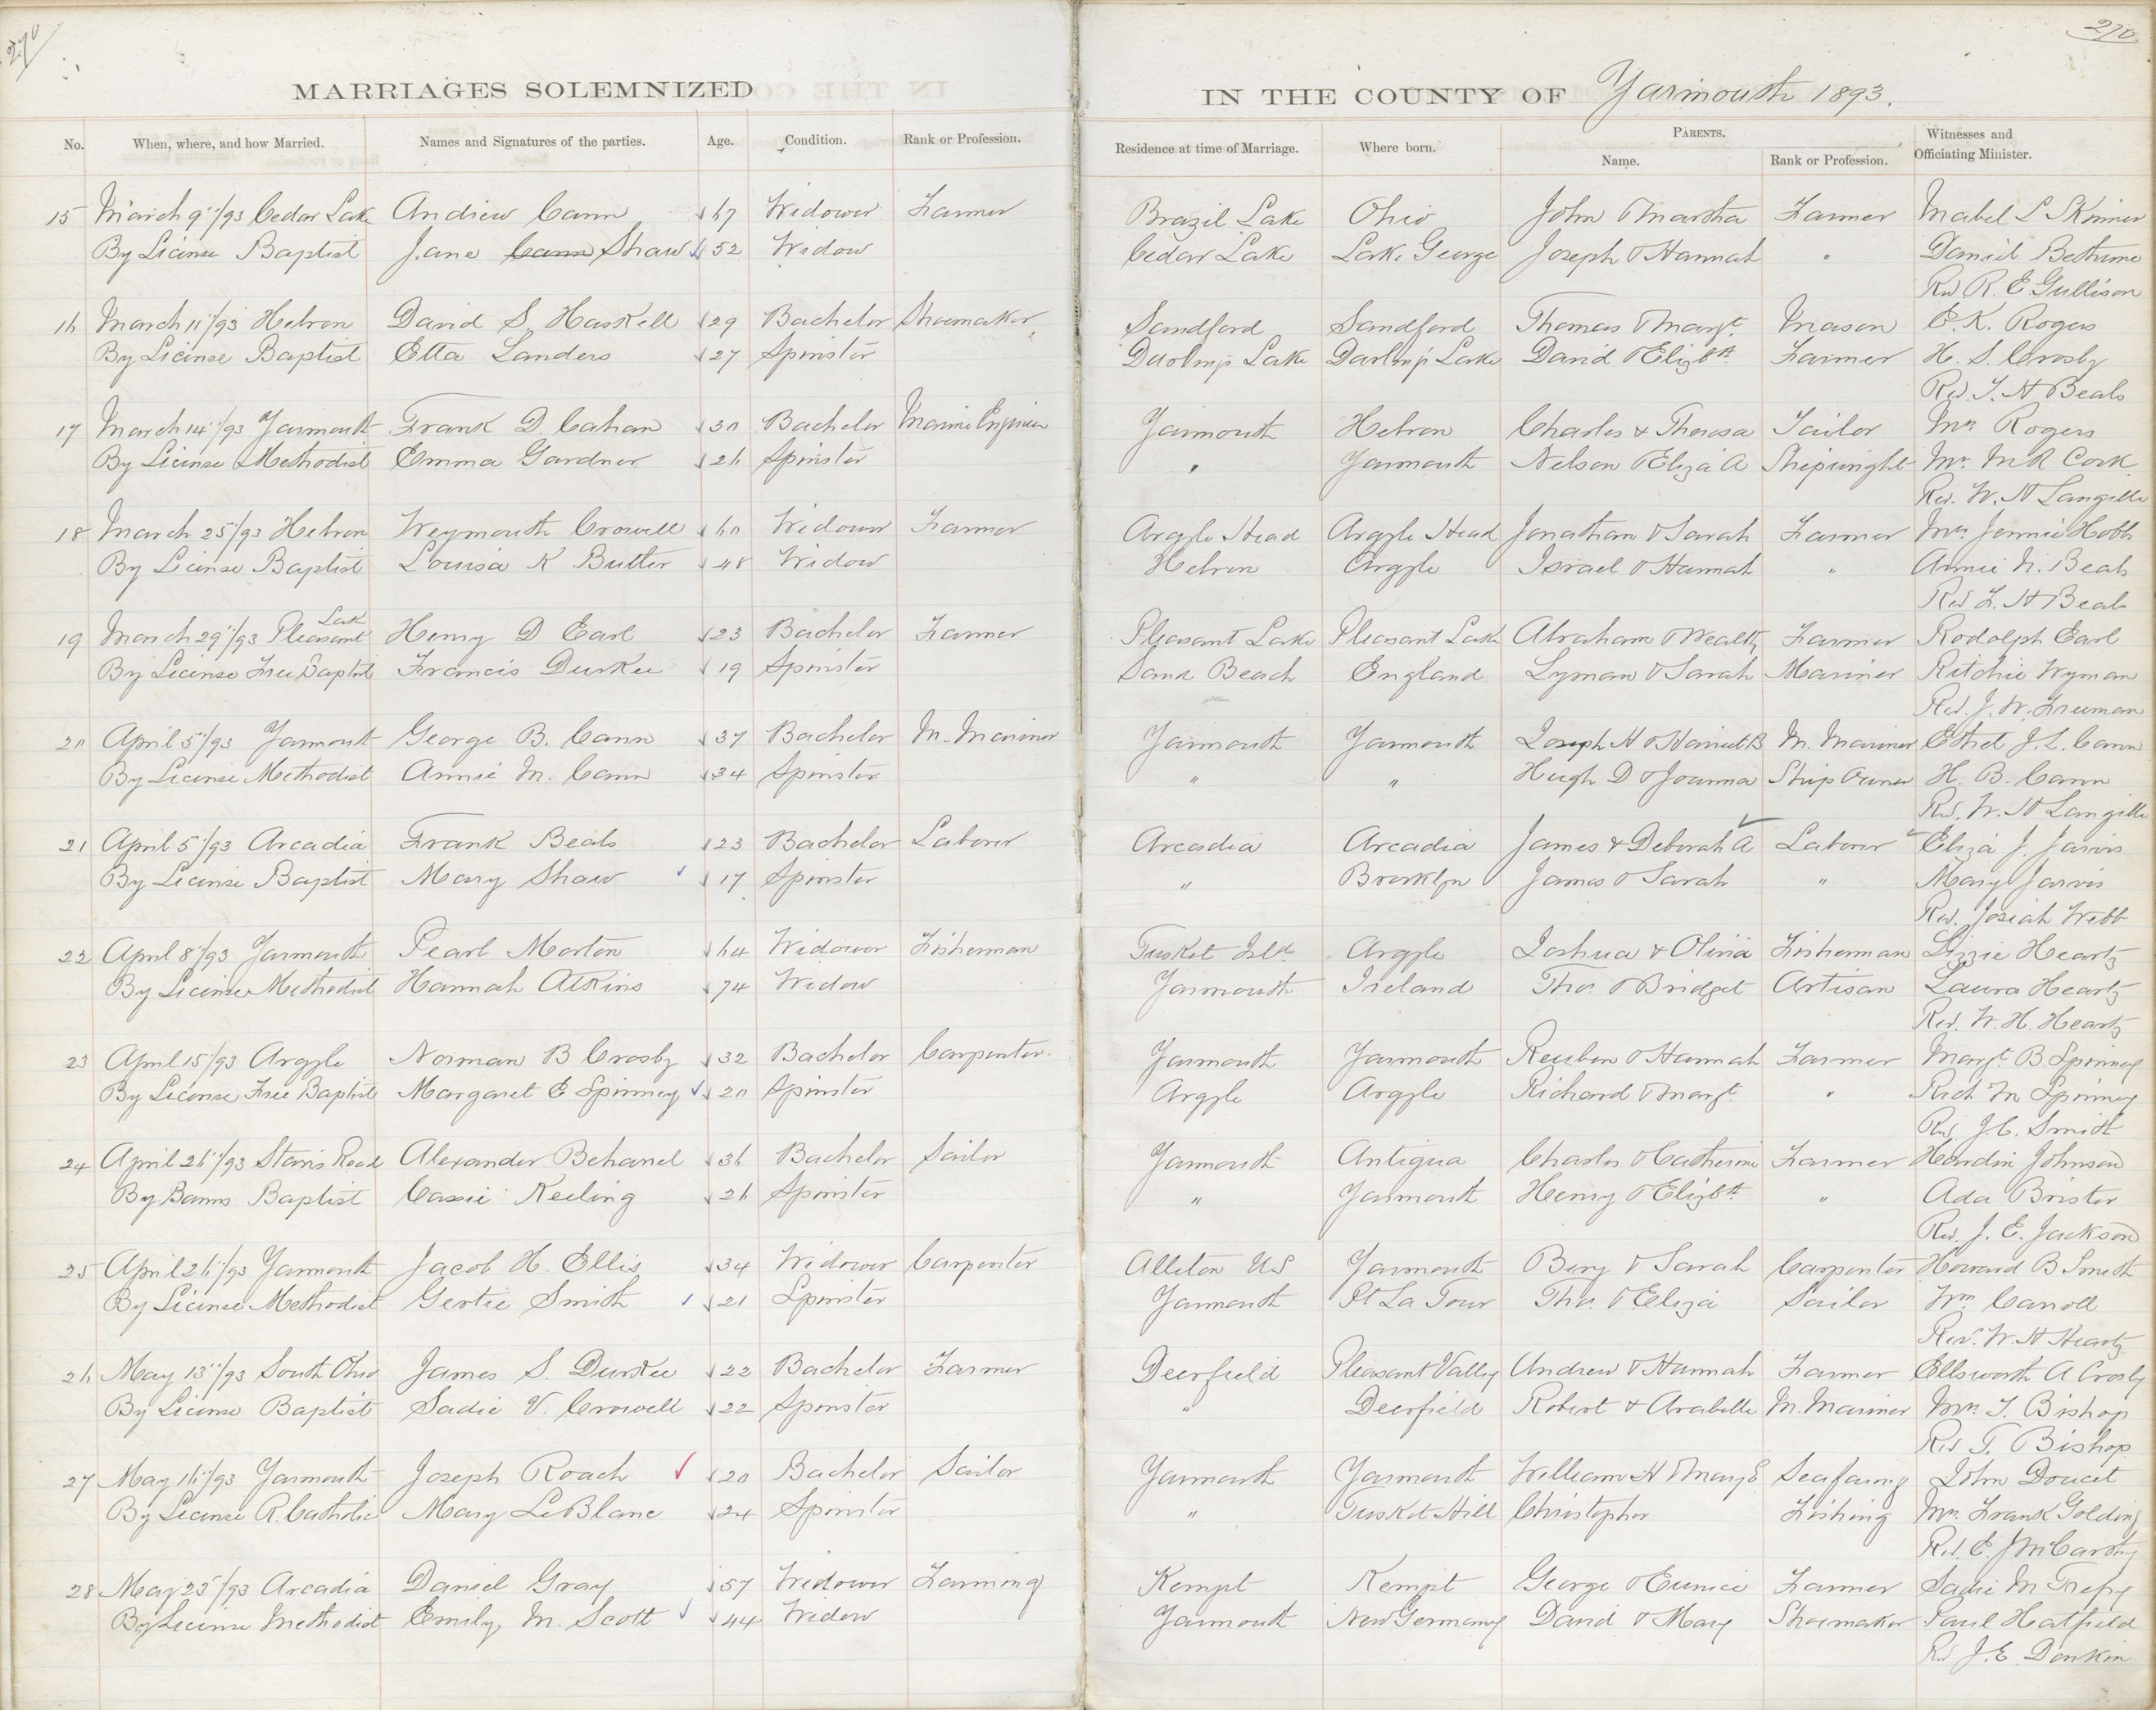 270
MARRIAGES SOLEMNIZED
No. When, where, and how Married. Names and Signatures of the parties. Age. Condition. Rank or Profession.
15 March 9"/93 Cedar Lake Andrew Cann 67 Widower Farmer
By License Baptist Jane Cann Shaw 52 Widow
16 March 11"/93 Hebron David S. Haskell 29 Bachelor Shoemaker
By License Baptist Etta Landers 27 Spinster
17 March 14"/93 Yarmouth Frank D Cahan 30 Bachelor Marine Engineer
By License Methodist Emma Gardner 26 Spinster
18 March 25"/93 Hebron Weymouth Crowell 60 Widower Farmer
By License Baptist Louisa K Butler 48 Widow
19 March 29"/93 Pleasant Lake Henry D Earl 23 Bachelor Farmer
By License Free Baptist Francis Durkee 19 Spinster
20 April 5"/93 Yarmouth George B. Cann 37 Bachelor M. Mariner
By License Methodist Annie M. Cann 34 Spinster
21 April 5"/93 Arcadia Frank Beals 23 Bachelor Laborer
By License Baptist Mary Shaw 17 Spinster
22 April 8"/93 Yarmouth Pearl Morton 64 Widower Fisherman
By License Methodist Hannah Atkins 74 Widow
23 April 15"/93 Argyle Norman B Crosby 32 Bachelor Carpenter
By License Free Baptist Margaret E Spinney 20 Spinster
24 April 26"/93 Starrs Road Alexander Behanel 36 Bachelor Sailor
By Banns Baptist Cassie Keeling 26 Spinster
25 April 26"/93 Yarmouth Jacob H. Ellis 34 Widower Carpenter
By License Methodist Gertie Smith 21 Spinster
26 May 13"/93 South Ohio James S. Durkee 22 Bachelor Farmer
By License Baptist Sadie V. Crowell 22 Spinster
27 May 16"/93 Yarmouth Joseph Roach 20 Bachelor Sailor
By License R. Catholic Mary LeBlanc 24 Spinster
28 May 25"/93 Arcadia Daniel Gray 57 Widower Farming
By License Methodist Emily M. Scott 44 Widow
270
IN THE COUNTY OF Yarmouth 1893.
Residence at time of Marriage. Where born. PARENTS. Name. Rank or Profession. Witnesses and Officiating Minister.
Brazil Lake Ohio John & Martha Farmer Mabel L Skinner
Cedar Lake Lake George Joseph & Hannah " Daniel Bethune
Rev R. E Gullison
Sandford Sandford Thomas & Margt. Mason E. K. Rogers
Darling's Lake Darling's Lake David & Elizbth Farmer H. S. Crosby
Rev. F. H Beals
Yarmouth Hebron Charles & Theresa Tailor Mrs Rogers
" Yarmouth Nelson & Eliza A Shipwright Mr. M R Cook
Rev. W. H Langille
Argyle Head Argyle Head Jonathan & Sarah Farmer Mrs Jennie Hobbs
Hebron Argyle Israel & Hannah " Annie N. Beals
Rev F. H Beals
Pleasant Lake Pleasant Lake Abraham & Wealthy Farmer Rodolph Earl
Sand Beach England Lyman & Sarah Mariner Ritchie Wyman
Rev. J. W. Freeman
Yarmouth Yarmouth Joseph H & Harriet B M. Mariner Ethel J. L. Cann
" " Hugh D & Joanna Ship Owner H. B. Cann
Rev. W. H Langille
Arcadia Arcadia James & Deborah A Laborer Eliza J. Jarvis
" Brooklyn James & Sarah " Mary Jarvis
Rev. Josiah Webb
Tusket Islds Argyle Joshua & Olivia Fisherman Lizzie Heartz
Yarmouth Ireland Thos. & Bridget Artisan Laura Heartz
Rev. W. H. Heartz
Yarmouth Yarmouth Reuben & Hannah Farmer Margt. B Spinney
Argyle Argyle Richard & Margt. " Rich M Spinney
Rev. J. C. Smith
Yarmouth Antigua Charles & Catherine Farmer Johnson
" Yarmouth Henry & Elizbth " Ada Brister
Rev. J. E. Jackson
Allston US Yarmouth Benj & Sarah Carpenter Howard B Smith
Yarmouth Pt La Tour Thos. & Eliza Sailor Wm Carroll
Rev. W. H Heartz
Deerfield Pleasant Valley Andrew & Hannah Farmer Ellsworth A Crosby
" Deerfield Robert & Arabella M. Mariner Mrs T. Bishop
Rev T. Bishop
Yarmouth Yarmouth William H & Mary E Seafaring John Doucet
" Tusket Hill Christopher Fishing Mrs Frank Golding
Rev. E. J McCarthy
Kempt Kempt George & Eunice Farmer Sadie M Trefry
Yarmouth New Germany David & Mary Shoemaker Paul Hatfield
Rev J. E. Donkin